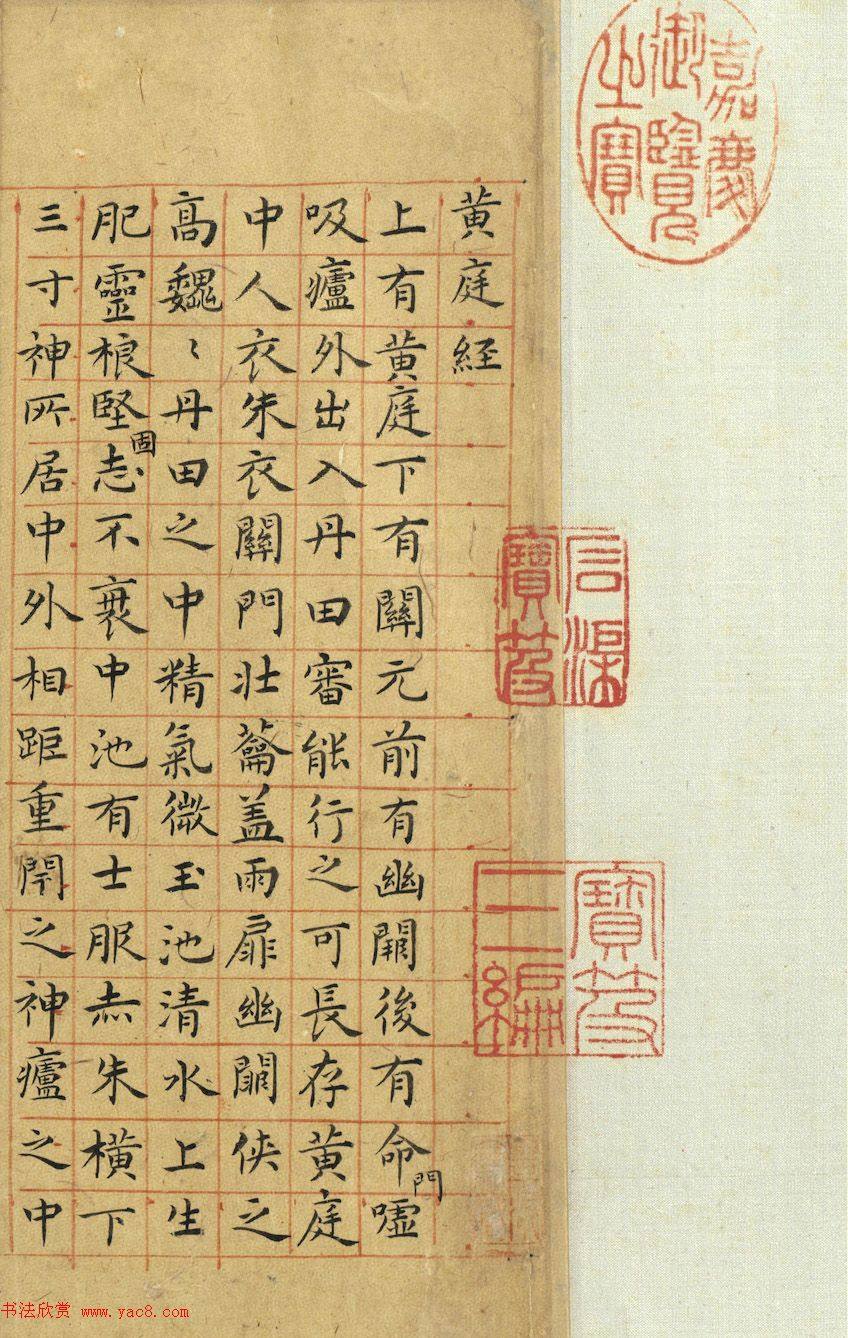 黄庭經
上有黄庭下有關元前有幽闕後有命門噓
吸廬外出入丹田審能行之可長存黄庭
中人衣朱衣關門壮蘥盖兩扉幽闕侠之
髙巍〻丹田之中精氣微玉池清水上生
肥靈根堅固志不衰中池有士服赤朱橫下
三寸神所居中外相距重閇之神廬之中
嘉慶
御覽
之寶
石渠
寶笈
寶笈
三編
书法欣赏 www.yac8.com